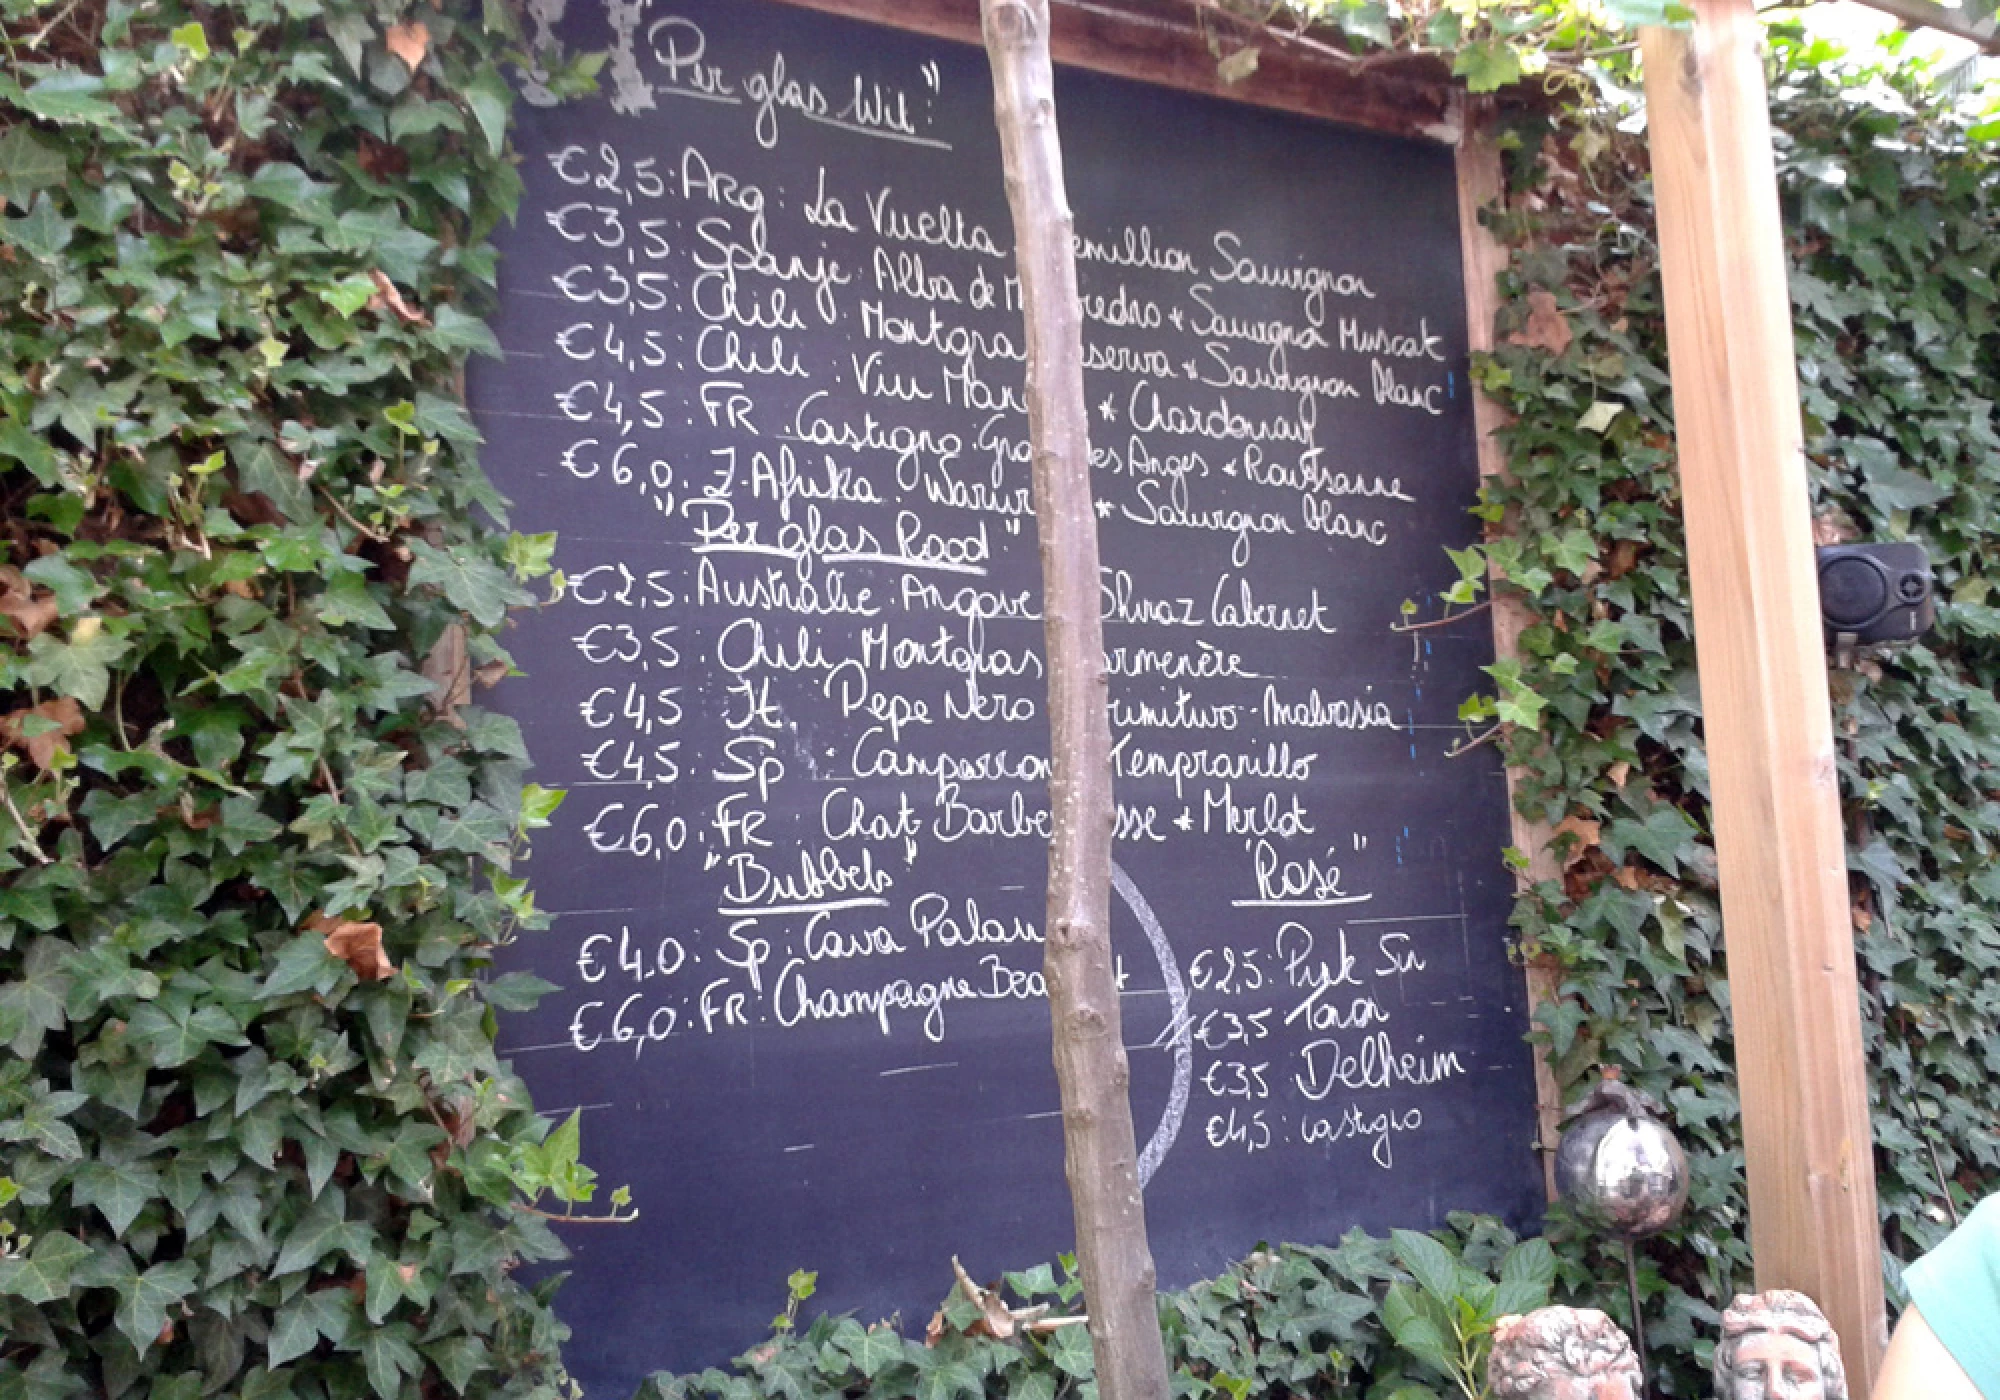 "Per glas Wit:"
€2,5: Arg: La Vuelta emillion Sauvignon
€3,5: Spanje: Alba de M iedro * Sauvigno Muscat
€3,5: Chili: Montgra eserva * Sauvignon blanc
€4,5: Chili: Viu Man * Chardonnay
€4,5: FR. Castigno: Gra des Anges * Roussanne
€6,0. Z-Afrika. Warwi * Sauvignon blanc
"Per glas Rood"
€2,5: Australie: Angove Shiraz Cabernet
€3,5: Chili Montgras armenère
€4,5 It. Pepe Nero rimitivo-Malvasia
€4,5. Sp: Camparron Tempranillo
€6,0: FR: Chat Barbe sse * Merlot
"Bubbels"
€4.0: Sp: Cava Palau
€6,0: FR: Champagne Bea t
"Rosé"
€2,5: Sir
€3,5
€3,5 Delheim
€4,5: Castigno